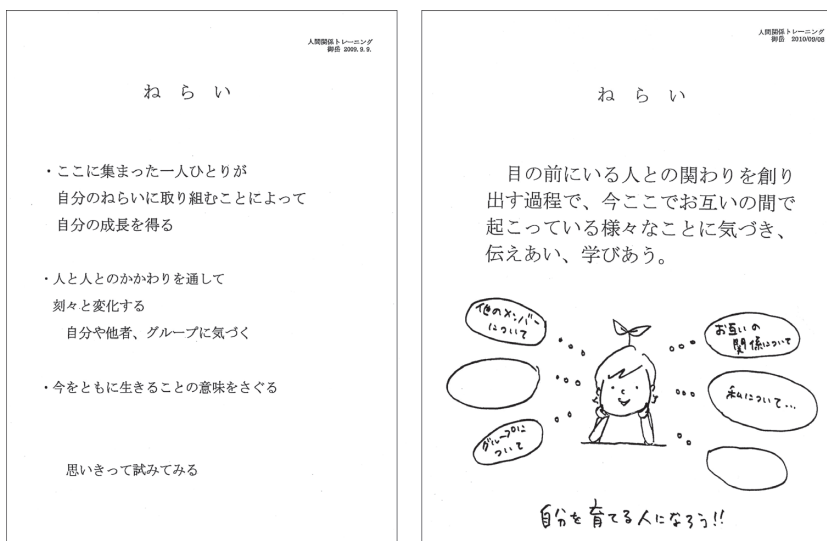 人間関係トレーニング
御岳 2009.9.9.
ね ら い
・ここに集まった一人ひとりが
自分のねらいに取り組むことによって
自分の成長を得る
・人と人とのかかわりを通して
刻々と変化する
自分や他者、グループに気づく
・今をともに生きることの意味をさぐる
思いきって試みてみる
人間関係トレーニング
御岳 2010/09/08
ね ら い
目の前にいる人との関わりを創り
出す過程で、今ここでお互いの間で
起こっている様々なことに気づき、
伝えあい、学びあう。
他のメンバー
について
お互いの
関係について
私について…
グループに
ついて
自分を育てる人になろう!!